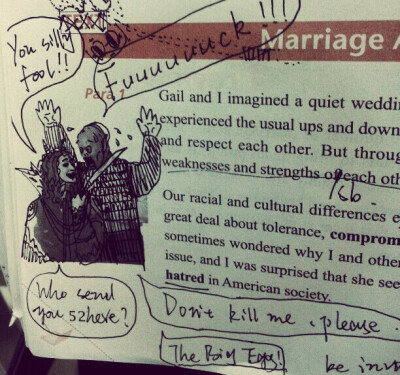 You silly
fool!!
Fuuuuuuuck!!!
Marriage A
Para 1
Gail and I imagined a quiet weddin
experienced the usual ups and down
and respect each other. But throug
weaknesses and strengths of each oth
Our racial and cultural differences e
great deal about tolerance, comprom
sometimes wondered why I and other
issue, and I was surprised that she see
hatred in American society.
Who send
you 52here?
Don't kill me, please.
The Big Eggs!
be inv